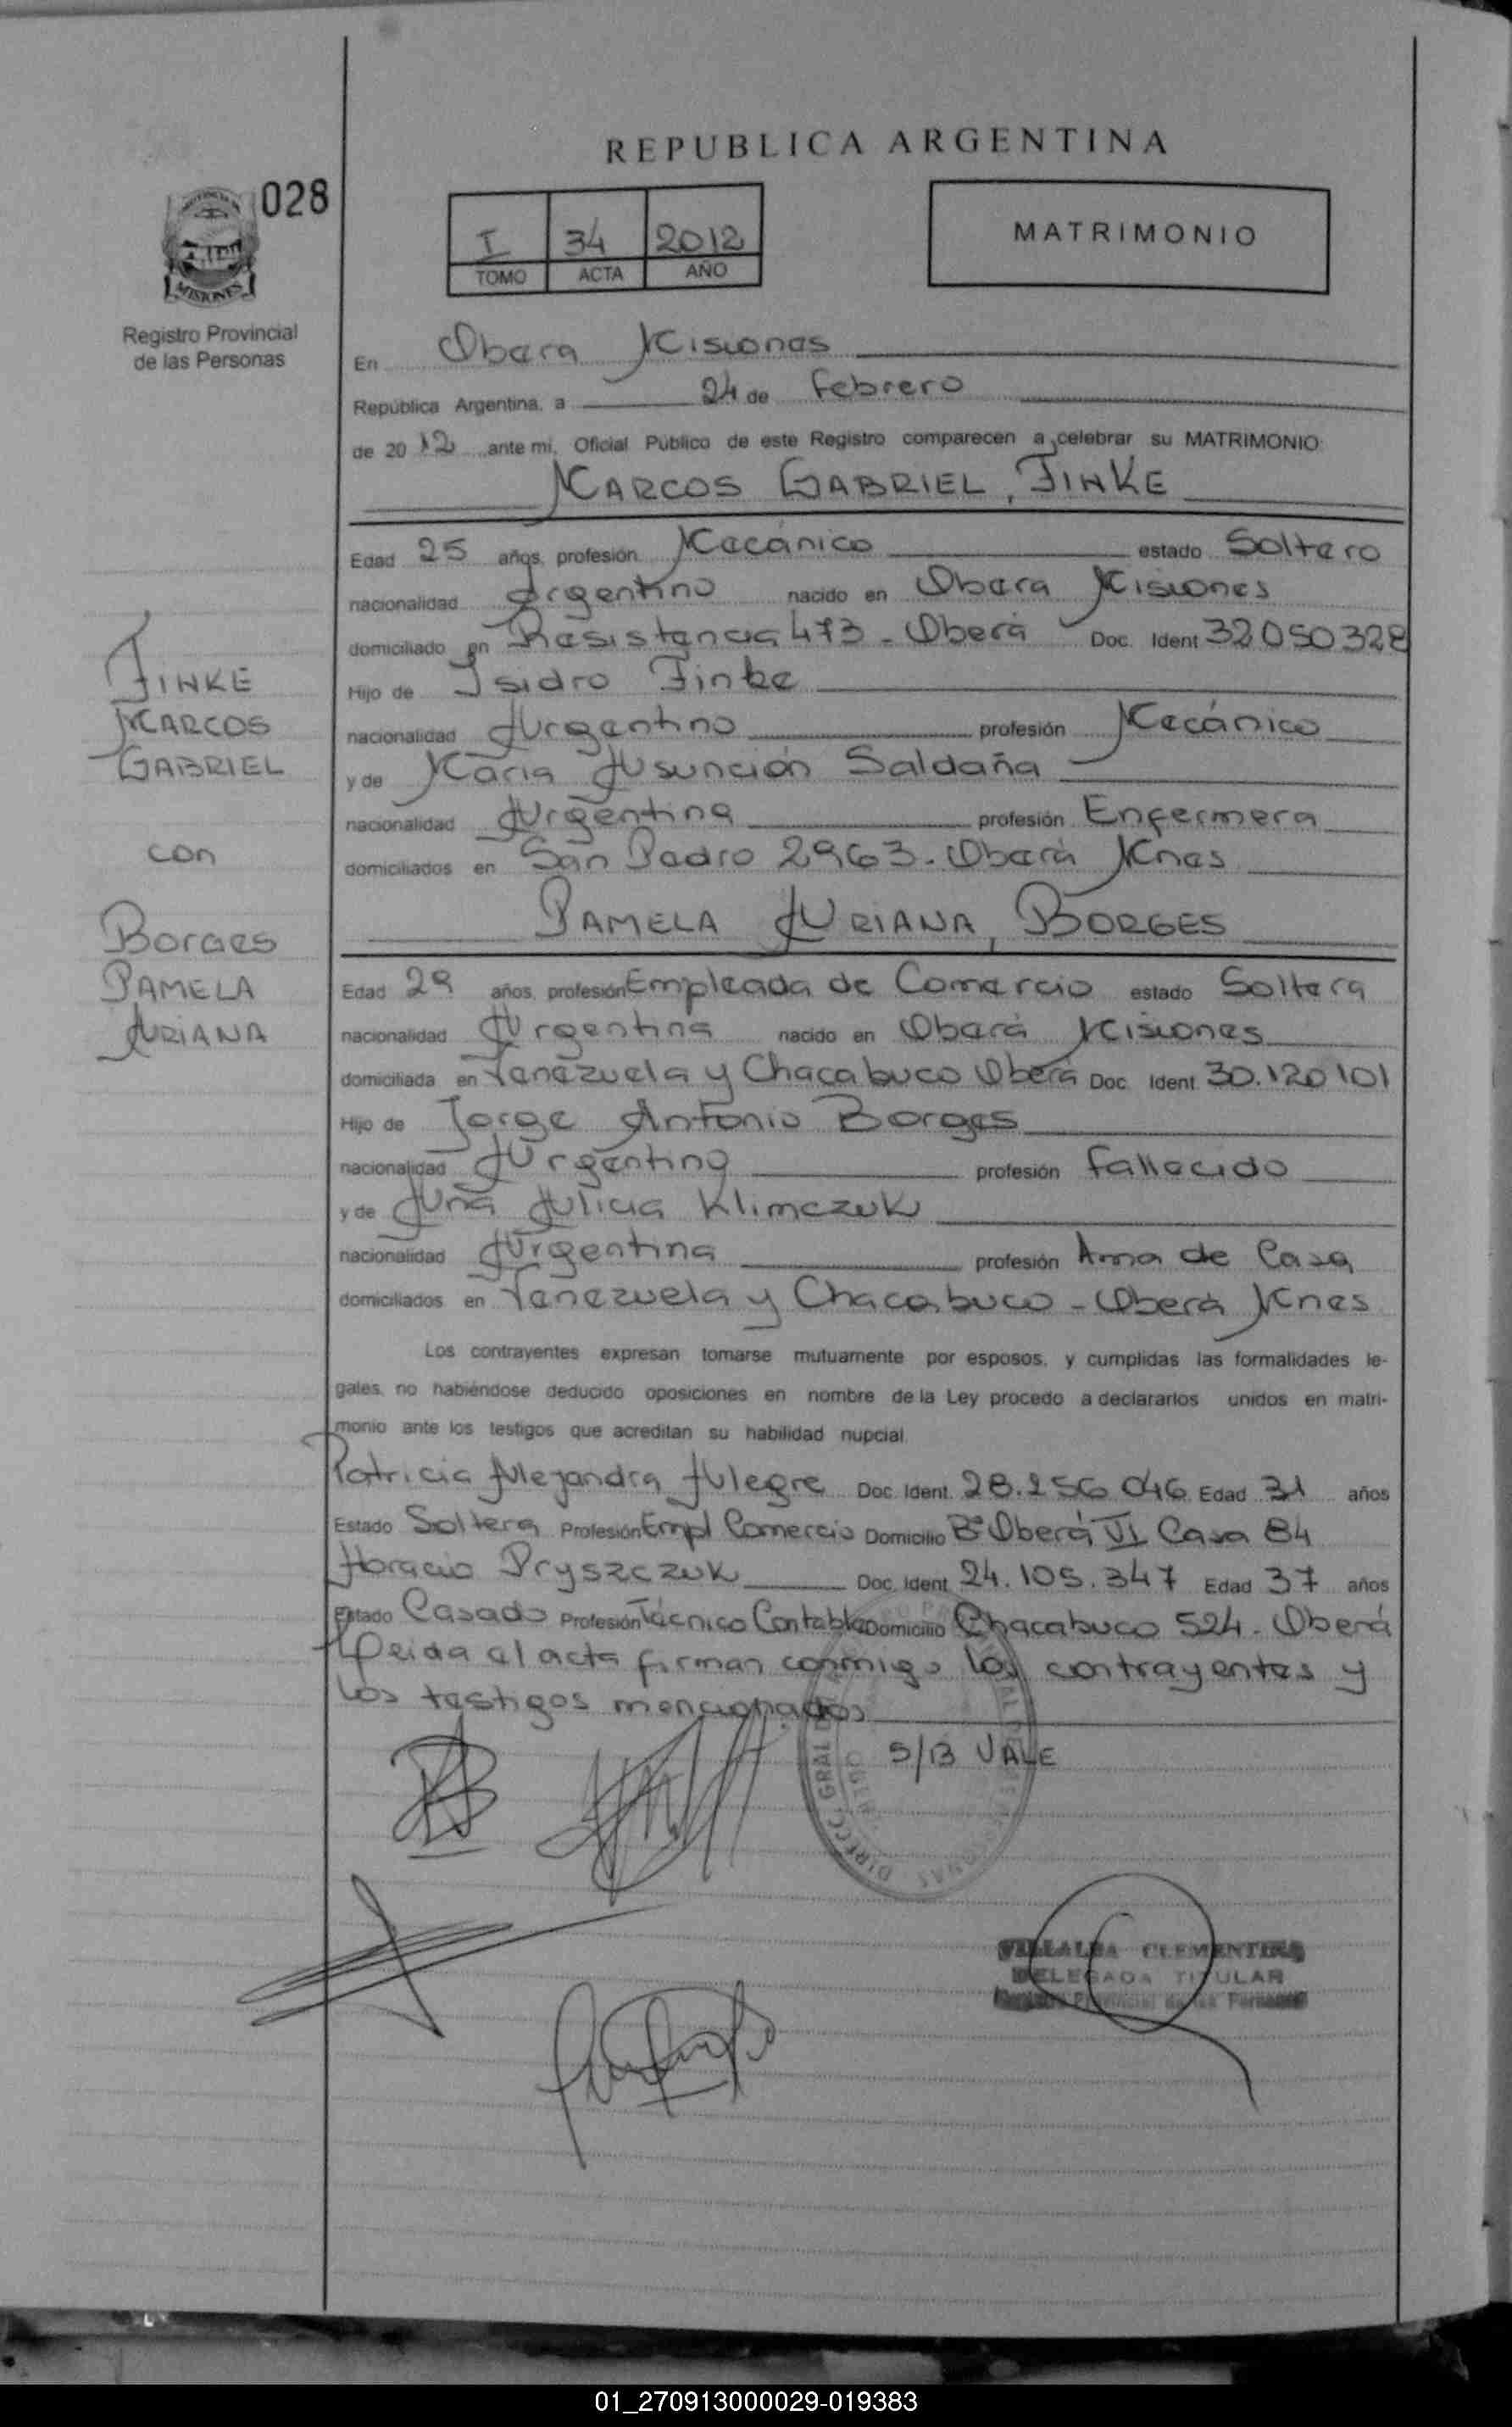 REPUBLICA ARGENTINA
028
MISIONES
Registro Provincial
de las Personas
I 34 2012
TOMO ACTA AÑO
MATRIMONIO
En Obera Misiones
República Argentina, a 24 de Febrero
de 2012 ante mi, Oficial Público de este Registro comparecen a celebrar su MATRIMONIO:
MARCOS GABRIEL, FINKE
Edad 25 años, profesión Mecánico estado Soltero
nacionalidad Argentino nacido en Obera Misiones
domiciliado en Resistencia 473 - Oberá Doc. Ident 32050328
Hijo de Isidro Finke
nacionalidad Argentino profesión Mecánico
y de Maria Asunción Saldaña
nacionalidad Argentina profesión Enfermera
domiciliados en San Pedro 2963 - Oberá Mnes
PAMELA ARIANA, BORGES
Edad 29 años, profesión Empleada de Comercio estado Soltera
nacionalidad Argentina nacido en Oberá Misiones
domiciliada en Venezuela y Chacabuco Oberá Doc. Ident 30.120101
Hijo de Jorge Antonio Borges
nacionalidad Argentino profesión Fallecido
y de Ana Alicia Klimczuk
nacionalidad Argentina profesión Ama de Casa
domiciliados en Venezuela y Chacabuco - Oberá Mnes
Los contrayentes expresan tomarse mutuamente por esposos, y cumplidas las formalidades le-
gales, no habiéndose deducido oposiciones en nombre de la Ley procedo a declararlos unidos en matri-
monio ante los testigos que acreditan su habilidad nupcial.
Patricia Alejandra Alegre Doc. Ident. 28.256 046 Edad 31 años
Estado Soltera Profesión Empl Comercio Domicilio Bº Oberá VI Casa 84
Horacio Pryszczuk Doc. Ident 24.105.347 Edad 37 años
Estado Casado Profesión Técnico Contable Domicilio Chacabuco 524 - Oberá
Leida el acta firman conmigo los contrayentes y
los testigos mencionados
S/B VALE
FINKE
MARCOS
GABRIEL
con
Borges
PAMELA
ARIANA
VILLALBA CLEMENTINA
DELEGADA TITULAR
Registro Provincial de las Personas
01_270913000029-019383